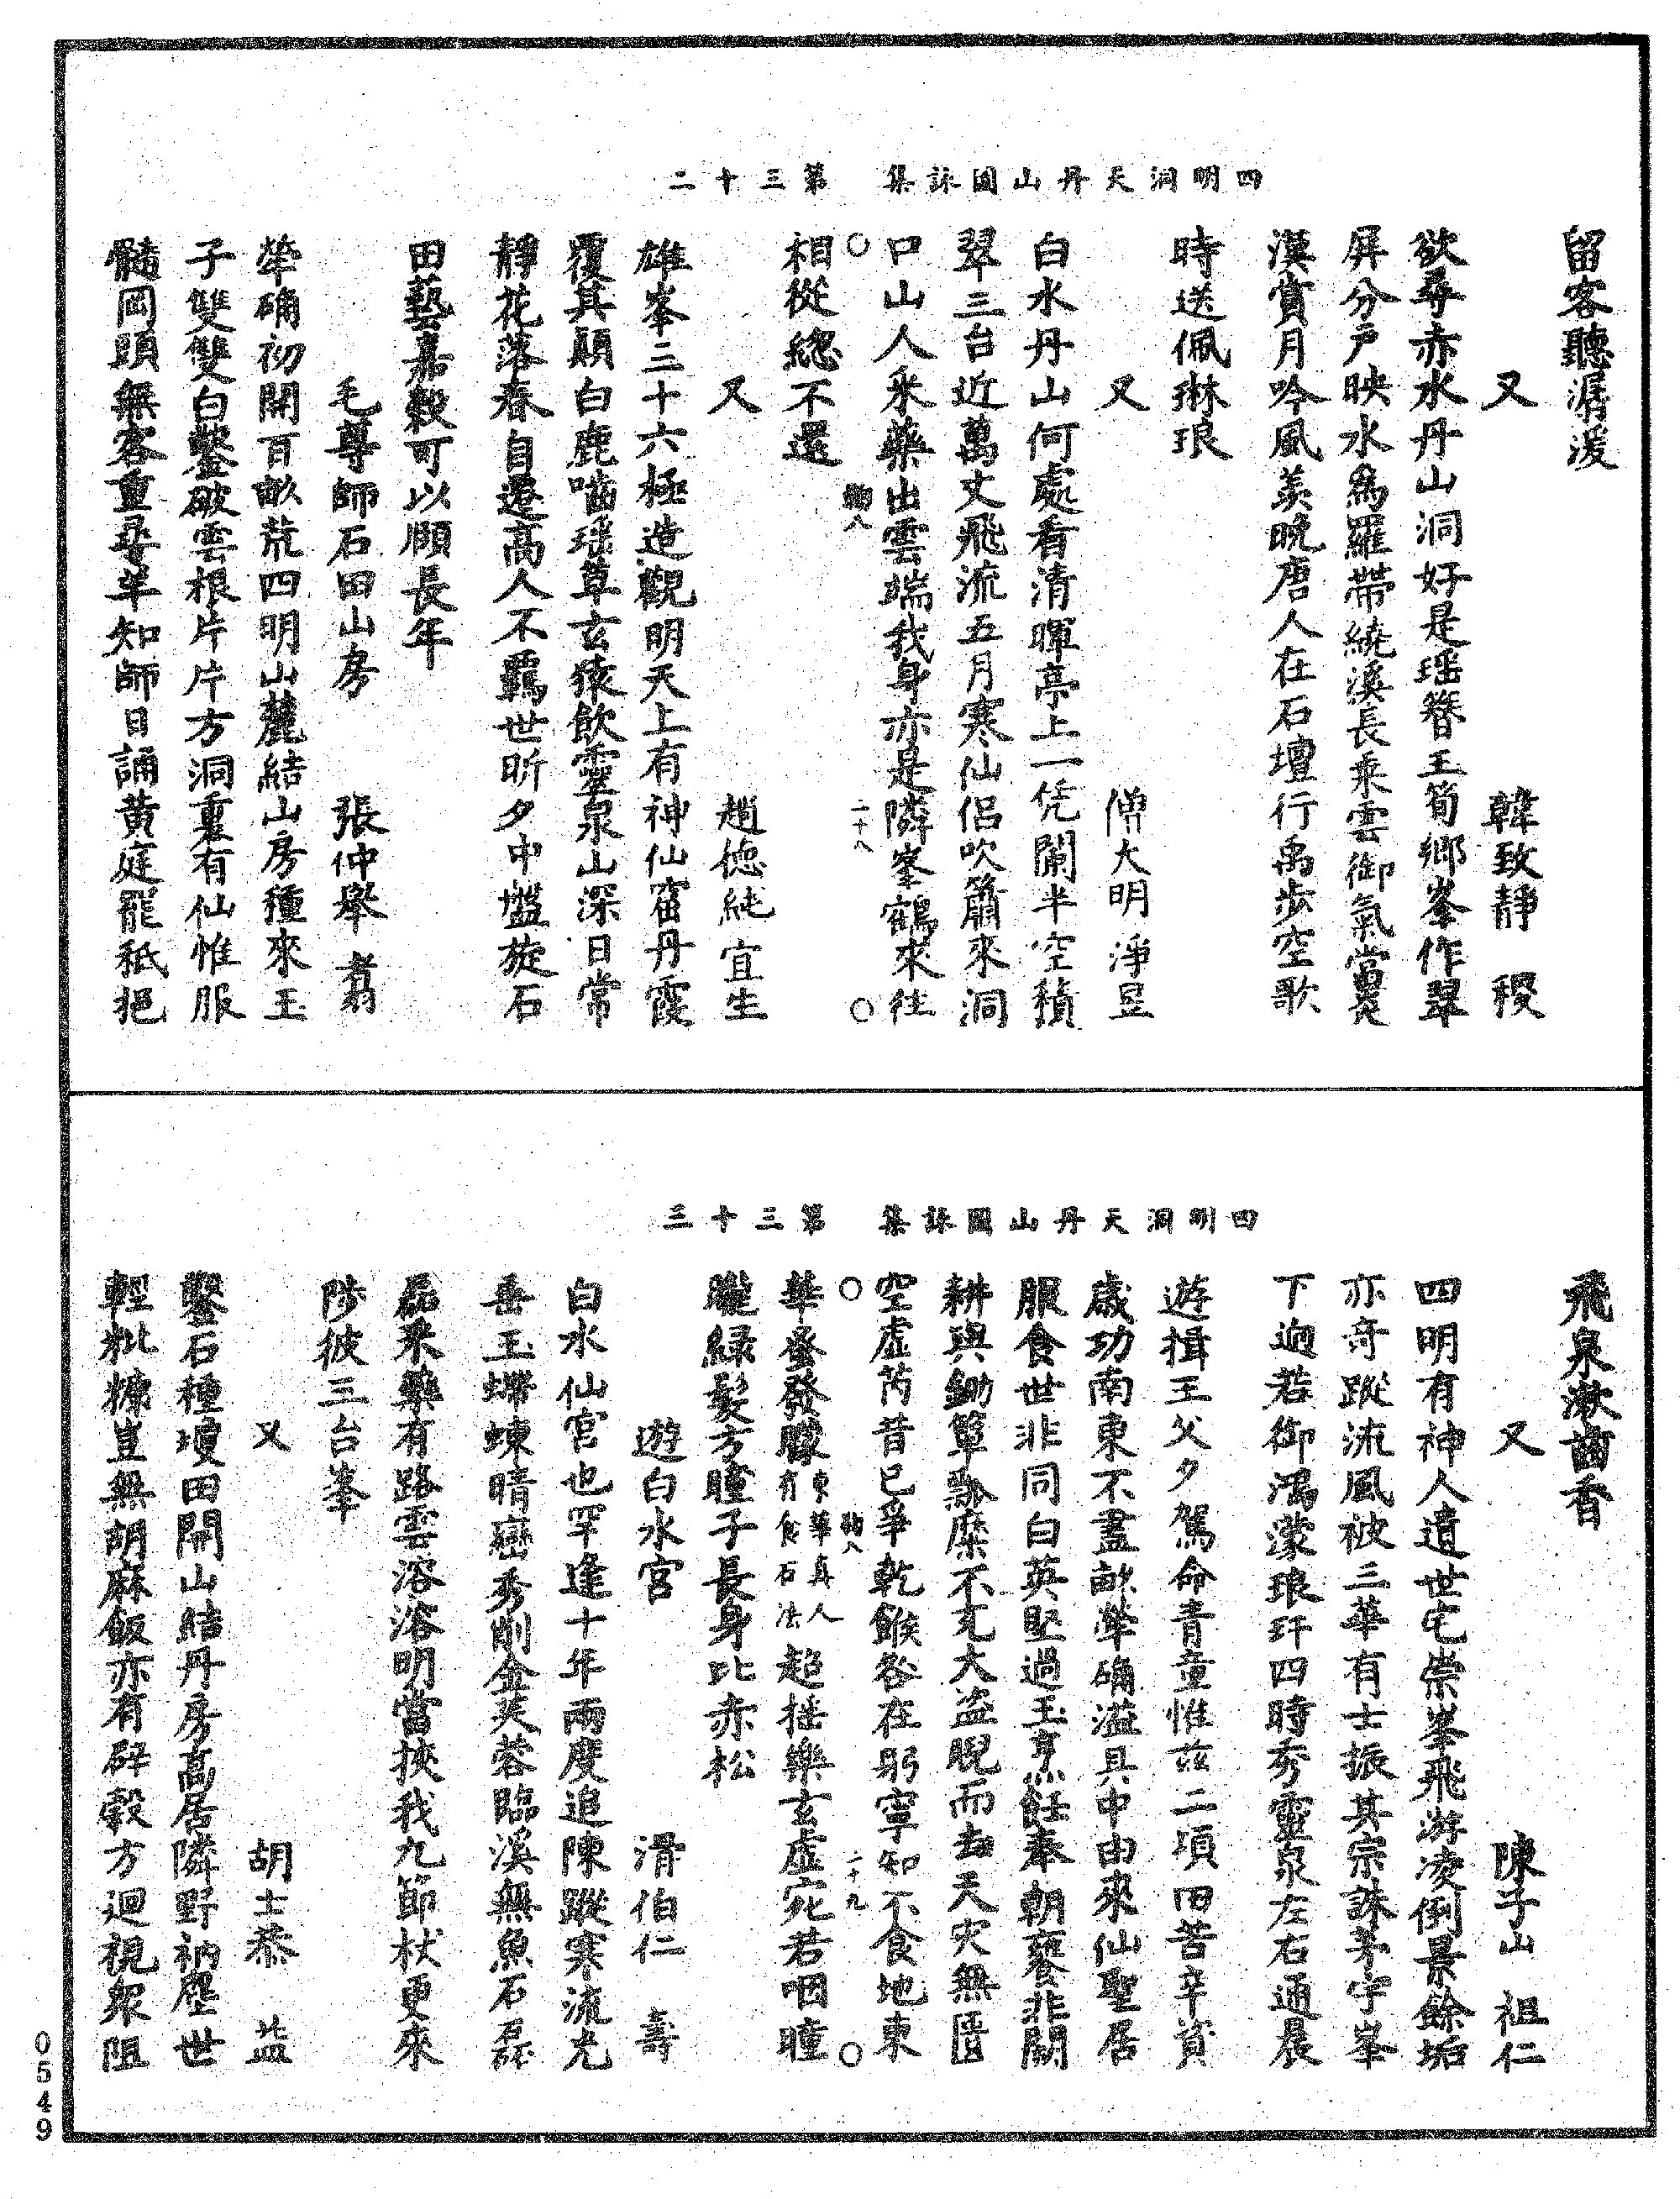 四明洞天丹山圖詠集　第三十二
留客聽潺湲
又　韓致靜　稷
欲尋赤水丹山洞好是瑶簪玉筍鄉峯作翠
屏分戶映水為羅帶繞溪長乘雲御氣當晁
漠賞月吟風羨晚唐人在石壇行禹步空歌
時送佩琳琅
又　僧大明　淨昱
白水丹山何處看清暉亭上一凭闌半空積
翠三台近萬丈飛流五月寒仙侣吹簫來洞
口山人釆藥出雲端我身亦是隣峯鶴來往
○　鞠八　二十八　○
相從總不還
又　趙德純　宜生
雄峯三十六極造觀明天上有神仙窟丹霞
覆其巔白鹿嚙瑶草玄猿飲靈泉山深日常
靜花落春自遷高人不羈世昕夕中盤旋石
田藝嘉穀可以頤長年
毛尊師石田山房　張仲舉　翥
犖确初開百畝荒四明山麓結山房種來玉
子雙雙白鑿破雲根片片方洞裏有仙惟服
髓岡頭無客重尋羊知師日誦黃庭罷秖把
四明洞天丹山圖詠集　第三十三
飛泉漱齒香
又　陳子山　祖仁
四明有神人遺世宅崇峯飛游凌倒景餘垢
亦奇蹤流風被三華有士振其宗誅茅宇峯
下逈若御澒濛琅玕四時秀靈泉左右通晨
遊揖王父夕駕命青童惟兹二頃田苦辛資
歲功南東不盡畝犖确溢具中由來仙聖居
服食世非同白英堅過玉烹飪奉朝饔非關
耕與鋤簞瓢糜不充大盗睨而去天灾無匱
空虛芮昔已爭乾餱咎在躬寧知不食地東
○　鞠八　二十九　○
華蚤發矇東華真人有食石法超摇樂玄虛宛若咽曈
曨緑髮方瞳子長身比赤松
遊白水宮　滑伯仁　壽
白水仙宮也罕逢十年兩度追陳蹤寒流充
岳玉螮蝀晴巒秀削金芙蓉臨溪無魚石磊
磊釆藥有路雲溶溶明當挾我九節杖更來
陟彼三台峯
又　胡士恭　益
鑿石種瓊田開山結丹房高居隣野衲塵世
輕粃糠豈無胡麻飯亦有辟穀方迴視衆阻
0549